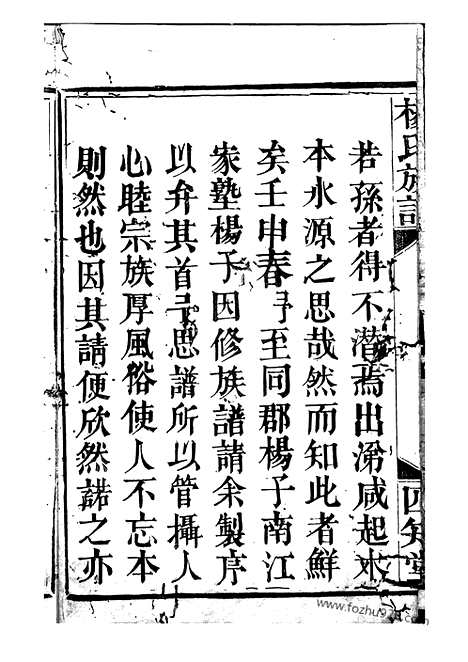 楊氏族譜 四知堂
若孫者得不潸焉出涕咸起木
本水源之思哉然而知此者鮮
矣壬申春予至同郡楊子南江
家塾楊子因修族譜請余製序
以弁其首予思譜所以管攝人
心睦宗族厚風俗使人不忘本
則然也因其請便欣然諾之亦